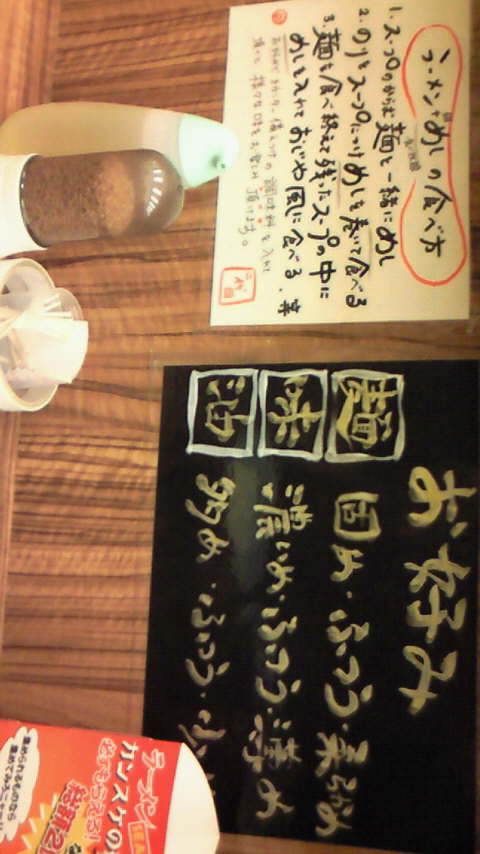 ラーメンめしの食べ方
1. スープのからむ麺と一緒にめし
2. のりをスープにつけめしを巻いて食べる
3. 麺を食べ終えて残ったスープの中に
めしを入れておじや風に食べる。等
調味料を入れ
頂けます。
お好み
麺 固め・ふつう・柔らかめ
味 濃いめ・ふつう・薄め
油 多め・ふつう・少
ラーメン
ガンスケの